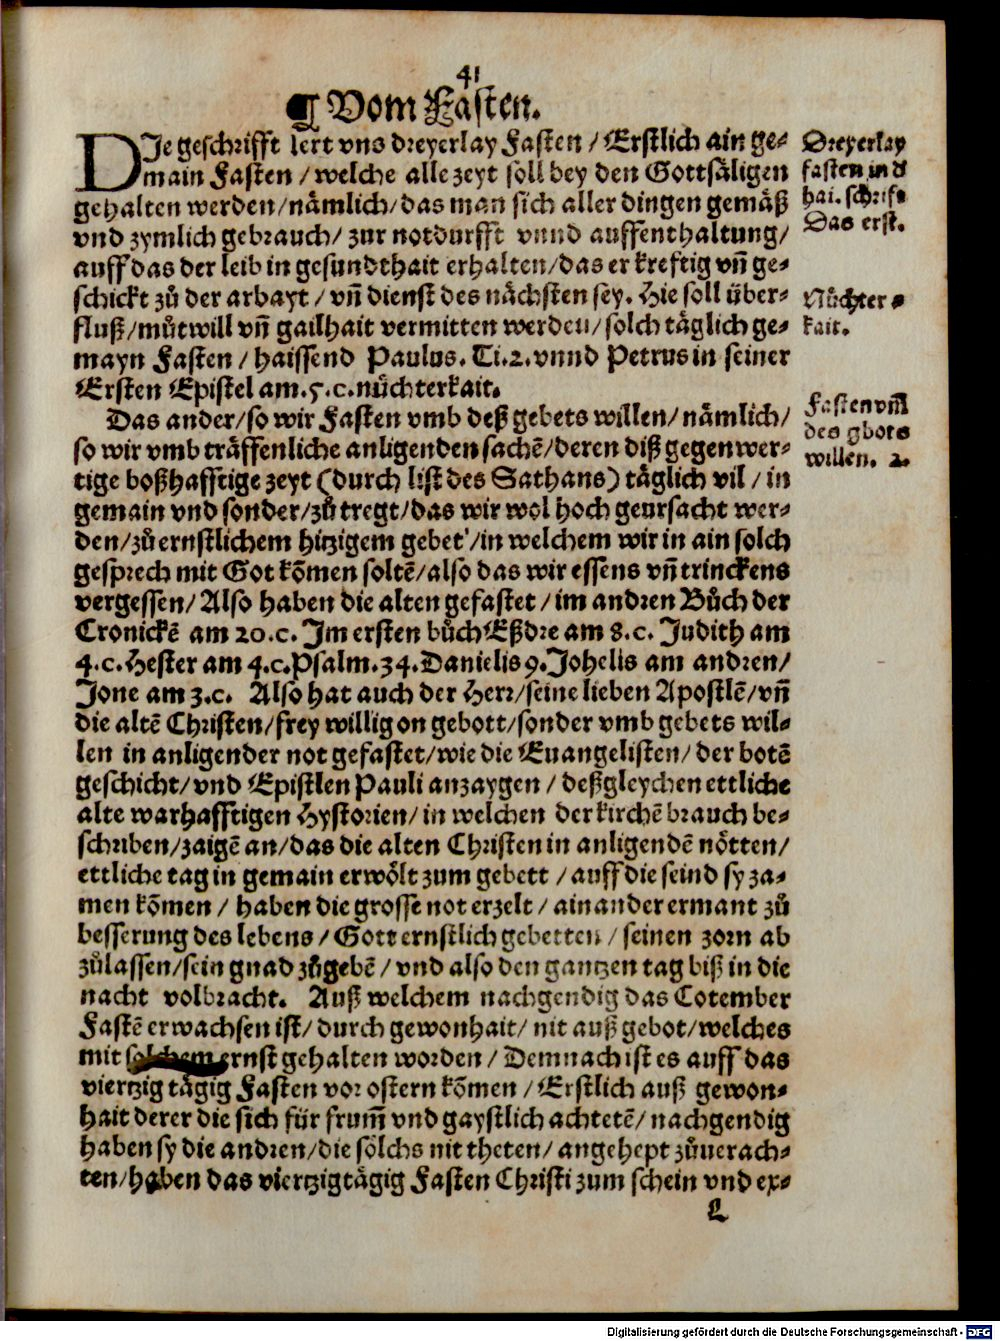 41
¶ Vom Fasten.
DIe geschrifft lert vns dreyerlay Fasten / Erstlich ain ge⸗
main Fasten / welche alle zeyt soll bey den Gottsäligen
gehalten werden/nämlich/das man sich aller dingen gemäß
vnd zymlich gebrauch/ zur notdurfft vnnd auffenthaltung/
auff das der leib in gesundthait erhalten/das er kreftig vñ ge⸗
schickt zů der arbayt / vñ dienst des nächsten sey. Hie soll über⸗
fluß/můtwill vñ gailhait vermitten werden/solch täglich ge⸗
mayn Fasten / haissend Paulus. Ti.2.vnnd Petrus in seiner
Ersten Epistel am.5.c.nüchterkait.
Das ander/so wir Fasten vmb deß gebets willen/nämlich/
so wir vmb träffenliche anligenden sachē/deren diß gegenwer⸗
tige boßhafftige zeyt (durch list des Sathans) täglich vil / in
gemain vnd sonder/zů tregt/das wir wol hoch geursacht wer⸗
den/zů ernstlichem hitzigem gebet'/in welchem wir in ain solch
gesprech mit Got kōmen soltē/also das wir essens vñ trinckens
vergessen/ Also haben die alten gefastet / im andren Bůch der
Cronickē am 20.c. Im ersten bůch Eßdre am 8.c. Judith am
4.c.Hester am 4.c.Psalm.34.Danielis 9.Johelis am andren/
Jone am 3.c. Also hat auch der Herr/seine lieben Apostlē/vñ
die altē Christen/frey willig on gebott/sonder vmb gebets wil⸗
len in anligender not gefastet/wie die Euangelisten/ der botē
geschicht/vnd Epistlen Pauli anzaygen / deßgleychen ettliche
alte warhafftigen Hystorien/in welchen der kirchē brauch be⸗
schriben/zaigē an/das die alten Christen in anligendē nötten/
ettliche tag in gemain erwölt zum gebett / auff die seind sy za⸗
men kōmen / haben die grosse not erzelt / ainander ermant zů
besserung des lebens / Gott ernstlich gebetten / seinen zorn ab
zůlassen/sein gnad zůgebē / vnd also den gantzen tag biß in die
nacht volbracht. Auß welchem nachgendig das Cotember
Fastē erwachsen ist/ durch gewonhait/ nit auß gebot/welches
mit solchem ernst gehalten worden / Demnach ist es auff das
viertzig tägig Fasten vor ostern kōmen / Erstlich auß gewon⸗
hait derer die sich für frum̄ vnd gaystlich achtetē/ nachgendig
haben sy die andren/die sölchs nit theten/ angehept zůuerach⸗
ten/haben das viertzigtägig Fasten Christi zum schein vnd ex⸗
L
Dreyerlay
fasten in d
hai. schrift
Das erst.
Nüchter⸗
kait.
Fasten vm̄
des gbots
willen. 2.
Digitalisierung gefördert durch die Deutsche Forschungsgemeinschaft - DFG